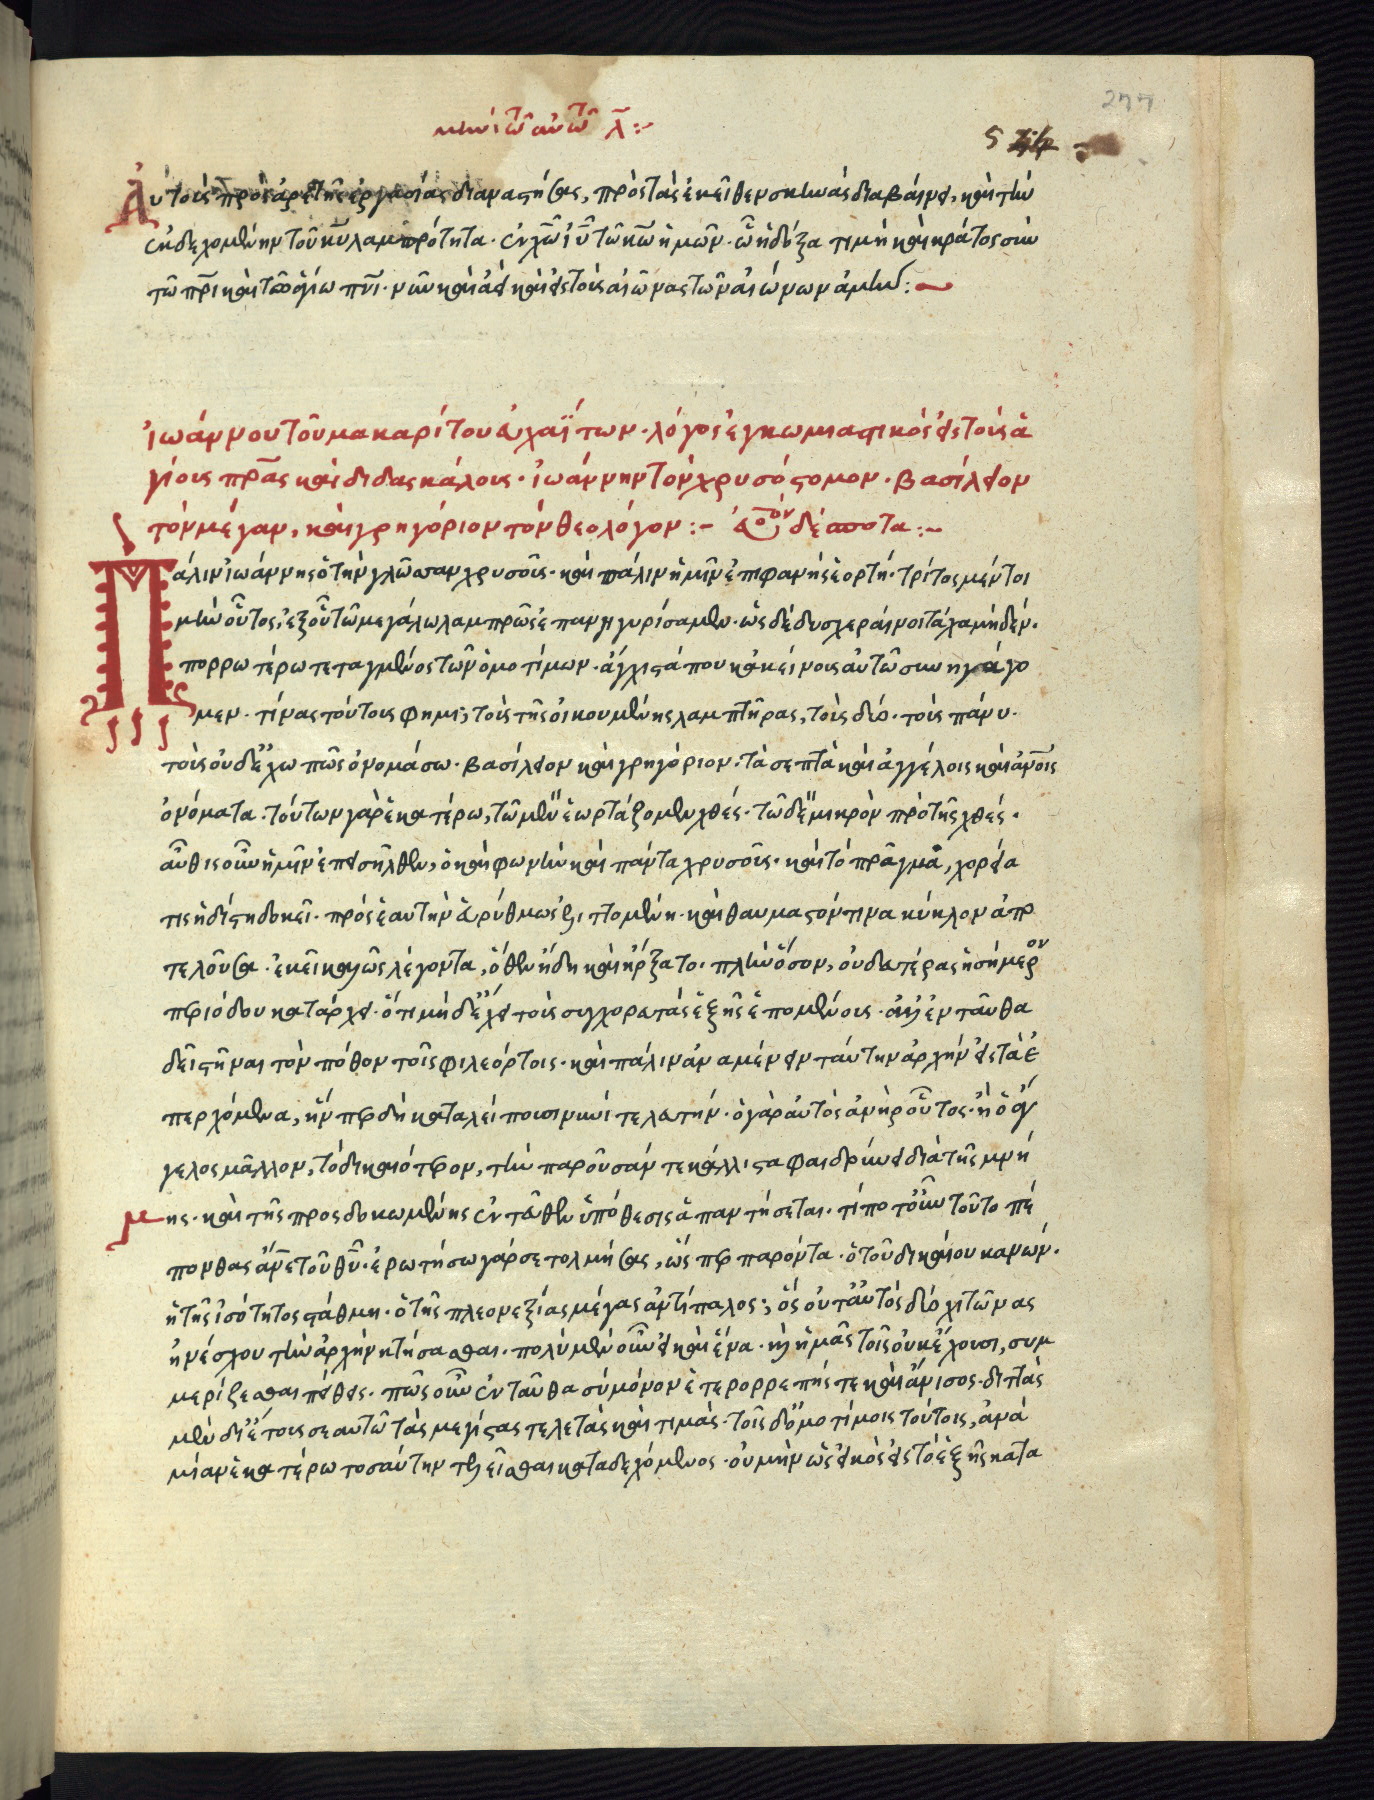 μηνὶ τῶ αὐτῶ λ̄:-
277
Αὐτοῖς πρὸς ἀρετῆς ἐργασίας διαναστήσας, πρὸς τὰς ἐκεῖθεν σκηνὰς διαβαίνει, καὶ τὴν
ἐνδεχομένην τοῦ κυ λαμπρότητα. ἐν χῶ ιυ τῶ κω ἡμῶν. ὧ ἡ δόξα τιμὴ καὶ κράτος σὺν
τῶ πρι καὶ τῶ ἁγίω πνι. νῦν καὶ ἀεὶ καὶ εἰς τοὺς αἰῶνας τῶν αἰώνων ἀμήν:
ἰωάννου τοῦ μακαρίτου εὐχαΐτων. λόγος ἐγκωμιαστικὸς εἰς τοὺς ἁ
γίους πρας καὶ διδασκάλους. ἰωάννην τὸν χρυσόστομον. βασίλειον
τὸν μέγαν, καὶ γρηγόριον τὸν θεολόγον:- εὐλόγησον δέσποτα:-
Πάλιν ἰωάννης ὁ τὴν γλῶσσαν χρυσοῦς. καὶ πάλιν ἡμῖν ἐπιφανὴς ἑορτή. τρίτος μέντοι
μὴν οὗτος, ἐξ οὗ τῶ μεγάλω λαμπρῶς ἐπανηγυρίσαμεν. ὡς δὲ δυσχεραίνοι τάχα μηδὲν.
πορρωτέρω τεταγμένος τῶν ὁμοτίμων. ἄγχιστά που κἀκείνους αὐτῶ συνηγάγο
μεν. τίνας τούτους φημί; τοὺς τῆς οἰκουμένης λαμπτῆρας, τοὺς δύο. τοὺς πάνυ.
τοὺς οὐδ' ἔχω πῶς ὀνομάσω. βασίλειον καὶ γρηγόριον. τὰ σεπτὰ καὶ ἀγγέλοις καὶ ἀνοις
ὀνόματα. τούτων γὰρ ἑκατέρω, τῶ μὲν ἑωρτάζομεν χθές. τῶ δὲ μικρὸν πρὸ τῆς χθές.
αὖθις οὖν ἡμῖν ἐπεισῆλθεν, ὁ καὶ φωνὴν καὶ πάντα χρυσοῦς. καὶ τὸ πρᾶγμα, χορεία
τις ἡδίστη δοκεῖ. πρὸς ἑαυτὴν εὐρύθμως ἑλιττομένη. καὶ θαυμαστόν τινα κύκλον ἀπο
τελοῦσα. ἐκεῖ καλῶς λέγοντα, ὅθεν ἤδη καὶ ἤρξατο. πλὴν ὅσον, οὐ δευτέρας ἡ σήμερον
περιόδου κατάρχει. ὅτι μὴ δ' ἔχει τοὺς συγχορευτὰς ἑξῆς ἑπομένους. ἀλλ' ἐνταῦθα
δεῖ στῆναι τὸν πόθον τοῖς φιλεόρτοις. καὶ πάλιν ἀναμένειν ταύτην ἀρχὴν εἰς τὰ ἐ
περχόμενα, ἥνπερ δὴ καταλείπουσι νυνὶ τελευτήν. ὁ γὰρ αὐτὸς ἀνὴρ οὗτος. ἢ ὁ ἄγ
γελος μᾶλλον, τὸ δικαιότερον, τὴν παροῦσάν τε κάλλιστα φαιδρύνει διὰ τῆς μνή
μης. καὶ τῆς προσδοκωμένης ἐντεῦθεν ὑπόθεσις ἀπαντήσεται. τί ποτ' οὖν τοῦτο πέ
πονθας ἄνε τοῦ θυ. ἐρωτήσω γάρ σε τολμήσας, ὥσπερ παρόντα. ὁ τοῦ δικαίου κανών.
ἡ τῆς ἰσότητος στάθμη. ὁ τῆς πλεονεξίας μέγας ἀντίπαλος; ὃς οὐτ' αὐτὸς δύο χιτῶνας
ἠνέσχου τὴν ἀρχὴν κτήσασθαι. πολὺ μὲν οὖν εἰ καὶ ἕνα. καὶ ἡμᾶς τοῖς οὐκ ἔχουσι, συμ
μερίζεσθαι πείθεις. πῶς οὖν ἐνταῦθα σὺ μόνον ἑτερορρεπής τε καὶ ἄνισος. διττὰς
μὲν δι' ἔτους σεαυτῶ τὰς μεγίστας τελετὰς καὶ τιμὰς. τοῖς δ' ὁμοτίμοις τούτοις, ἀνὰ
μίαν ἑκατέρω τοσαύτην τελεῖσθαι καταδεχόμενος. οὐ μὴν ὡς εἰκὸς εἰς τὸ ἑξῆς κατα